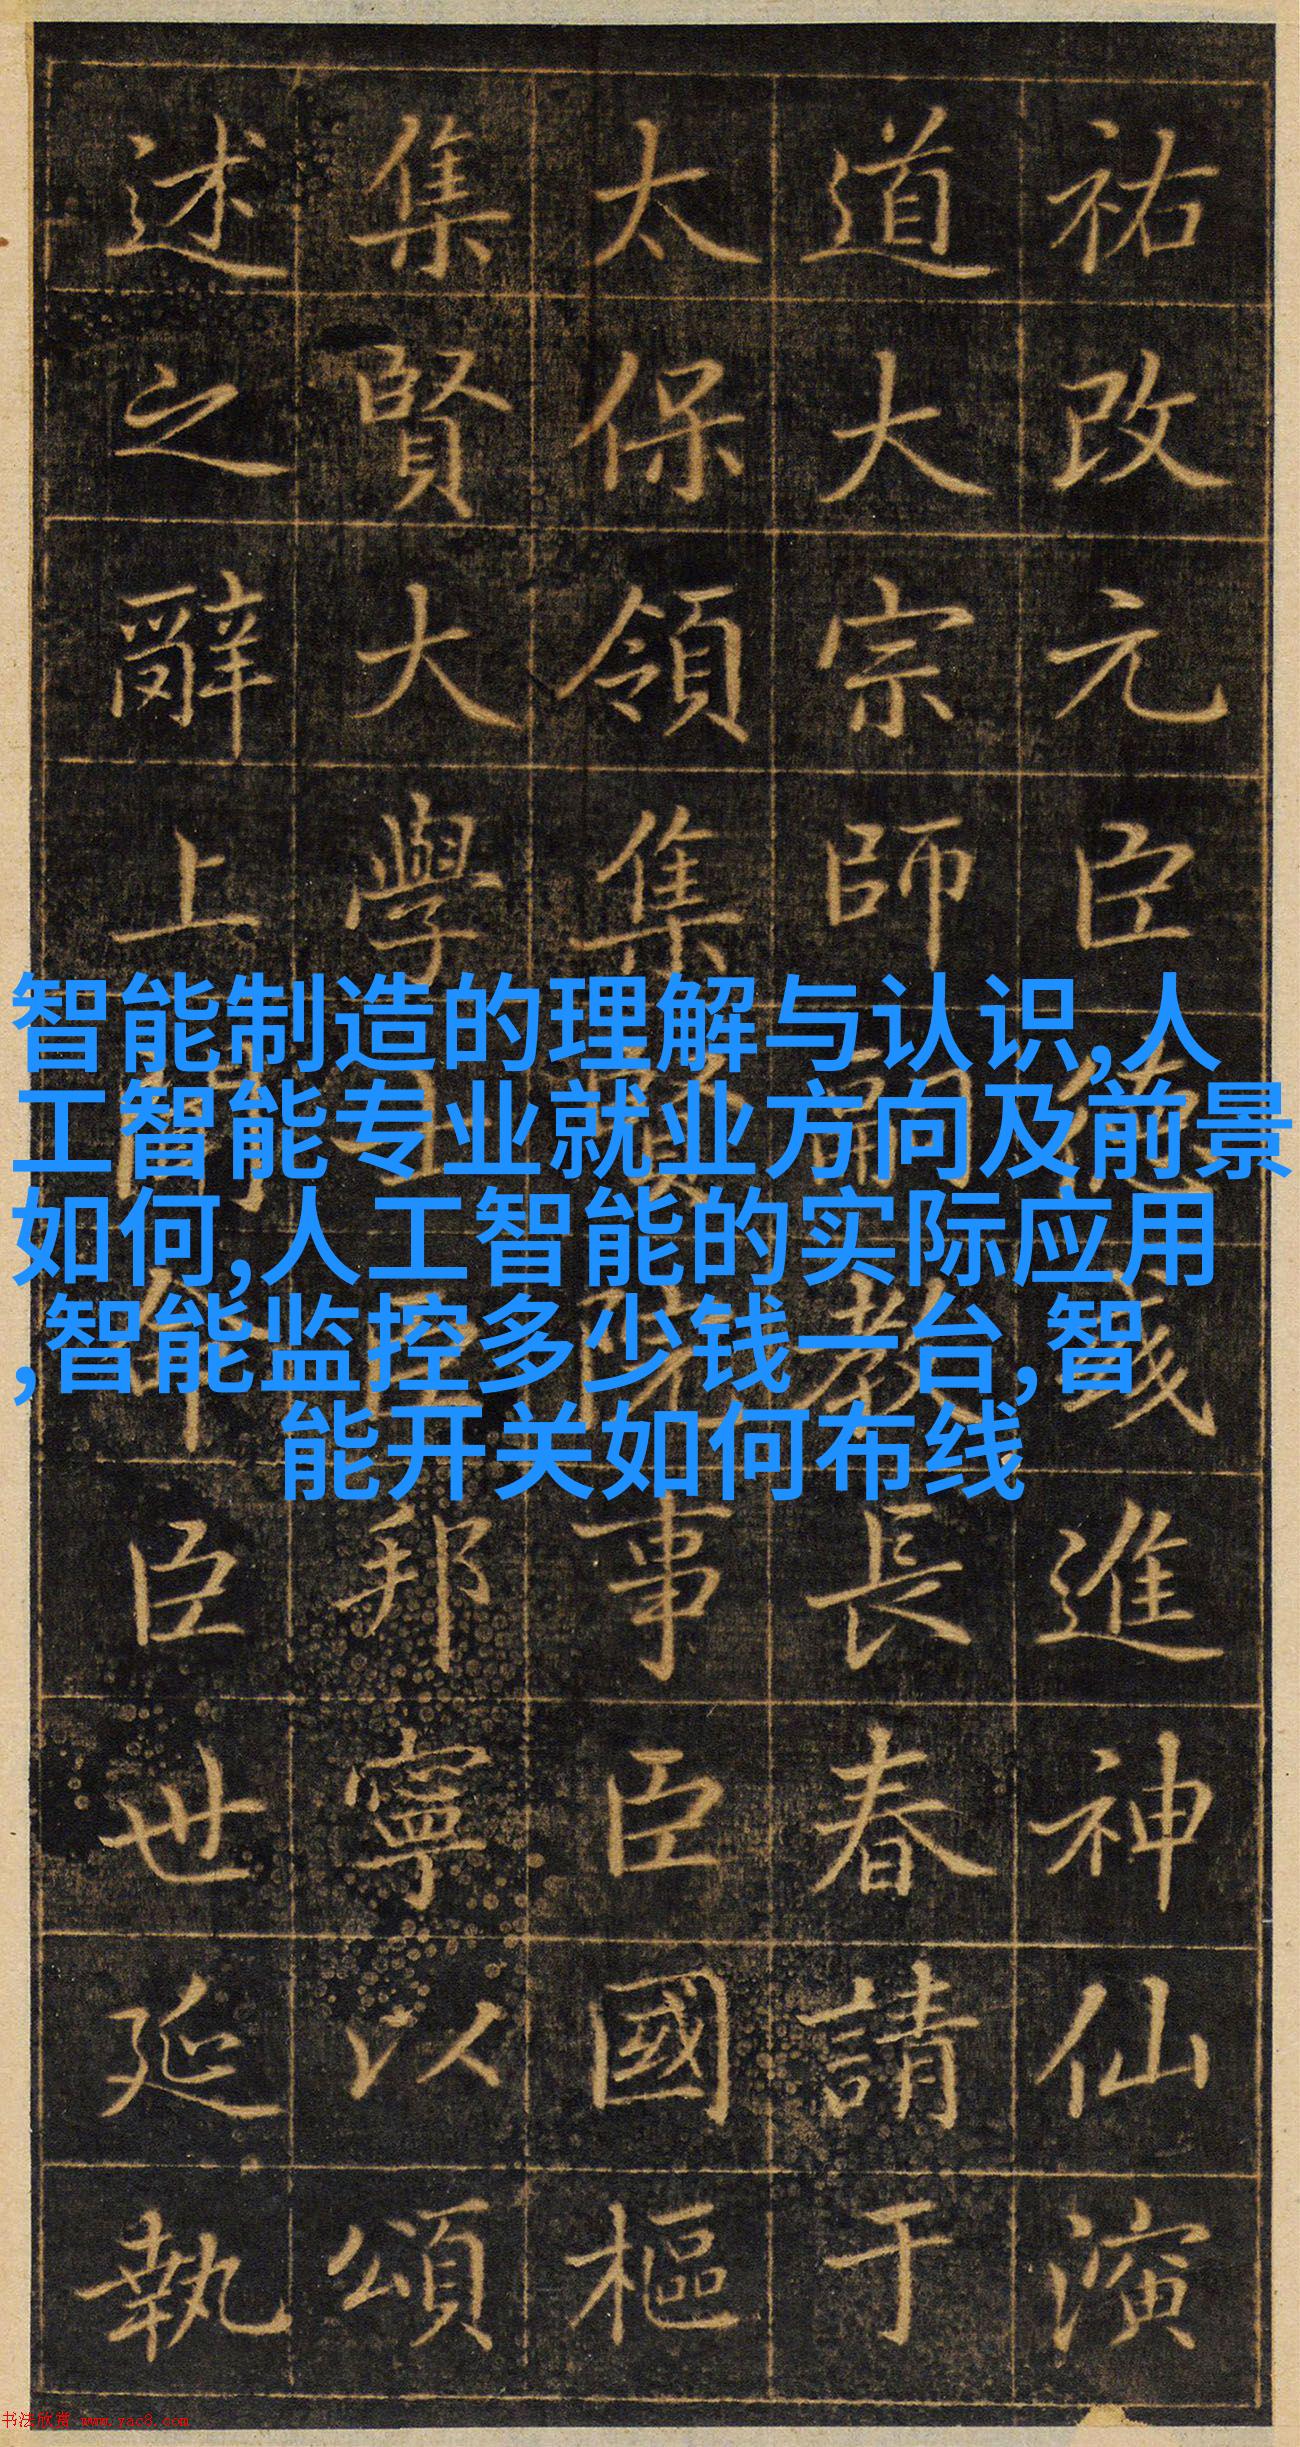 祐改元臣德彧進神仙演
道大宗師嗣教長春請于
太保領集賢院事臣國樞
集賢大學士臣邦寧以頌
述之辭上聞命臣世延執
智能制造的理解与认识,人
工智能专业就业方向及前景
如何,人工智能的实际应用
,智能监控多少钱一台,智
能开关如何布线
书法欣赏 www.yac8.com